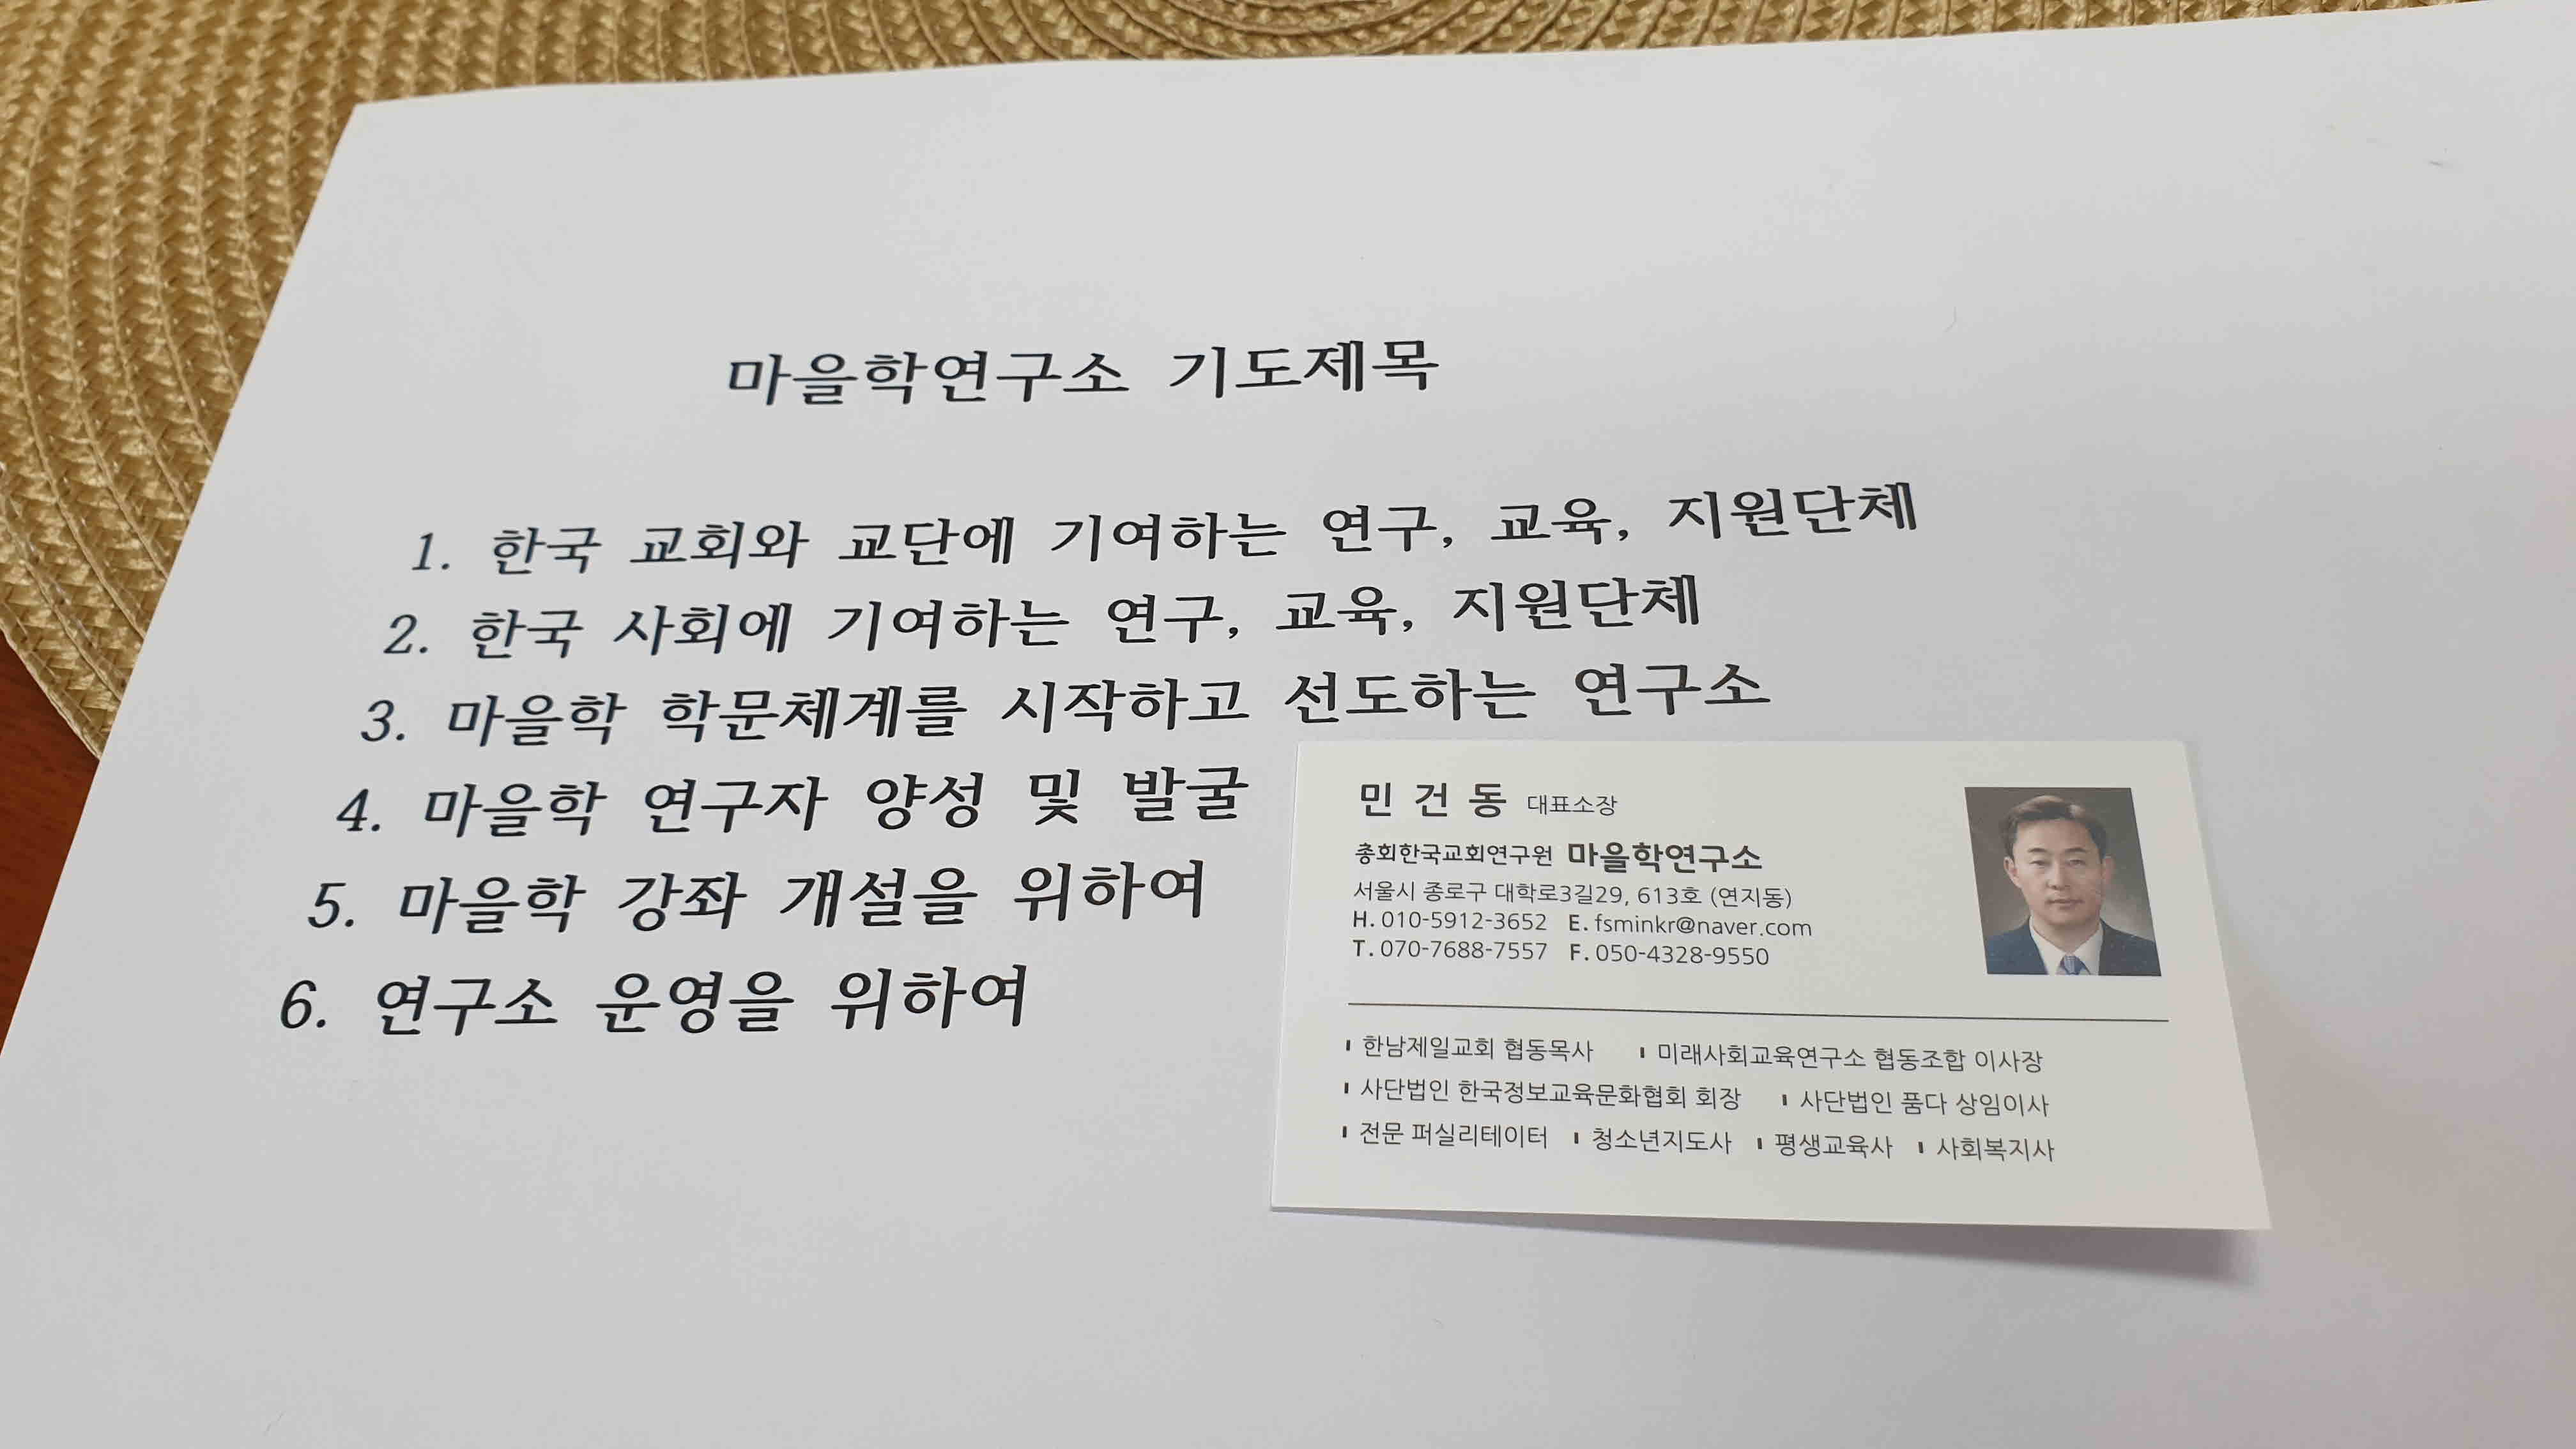 마을학연구소 기도제목
1. 한국 교회와 교단에 기여하는 연구, 교육, 지원단체
2. 한국 사회에 기여하는 연구, 교육, 지원단체
3. 마을학 학문체계를 시작하고 선도하는 연구소
4. 마을학 연구자 양성 및 발굴
5. 마을학 강좌 개설을 위하여
6. 연구소 운영을 위하여
민 건 동 대표소장
총회한국교회연구원 마을학연구소
서울시 종로구 대학로3길29, 613호 (연지동)
H. 010-5912-3652 E. fsminkr@naver.com
T. 070-7688-7557 F. 050-4328-9550
한남제일교회 협동목사 미래사회교육연구소 협동조합 이사장
사단법인 한국정보교육문화협회 회장 사단법인 품다 상임이사
전문 퍼실리테이터 청소년지도사 평생교육사 사회복지사